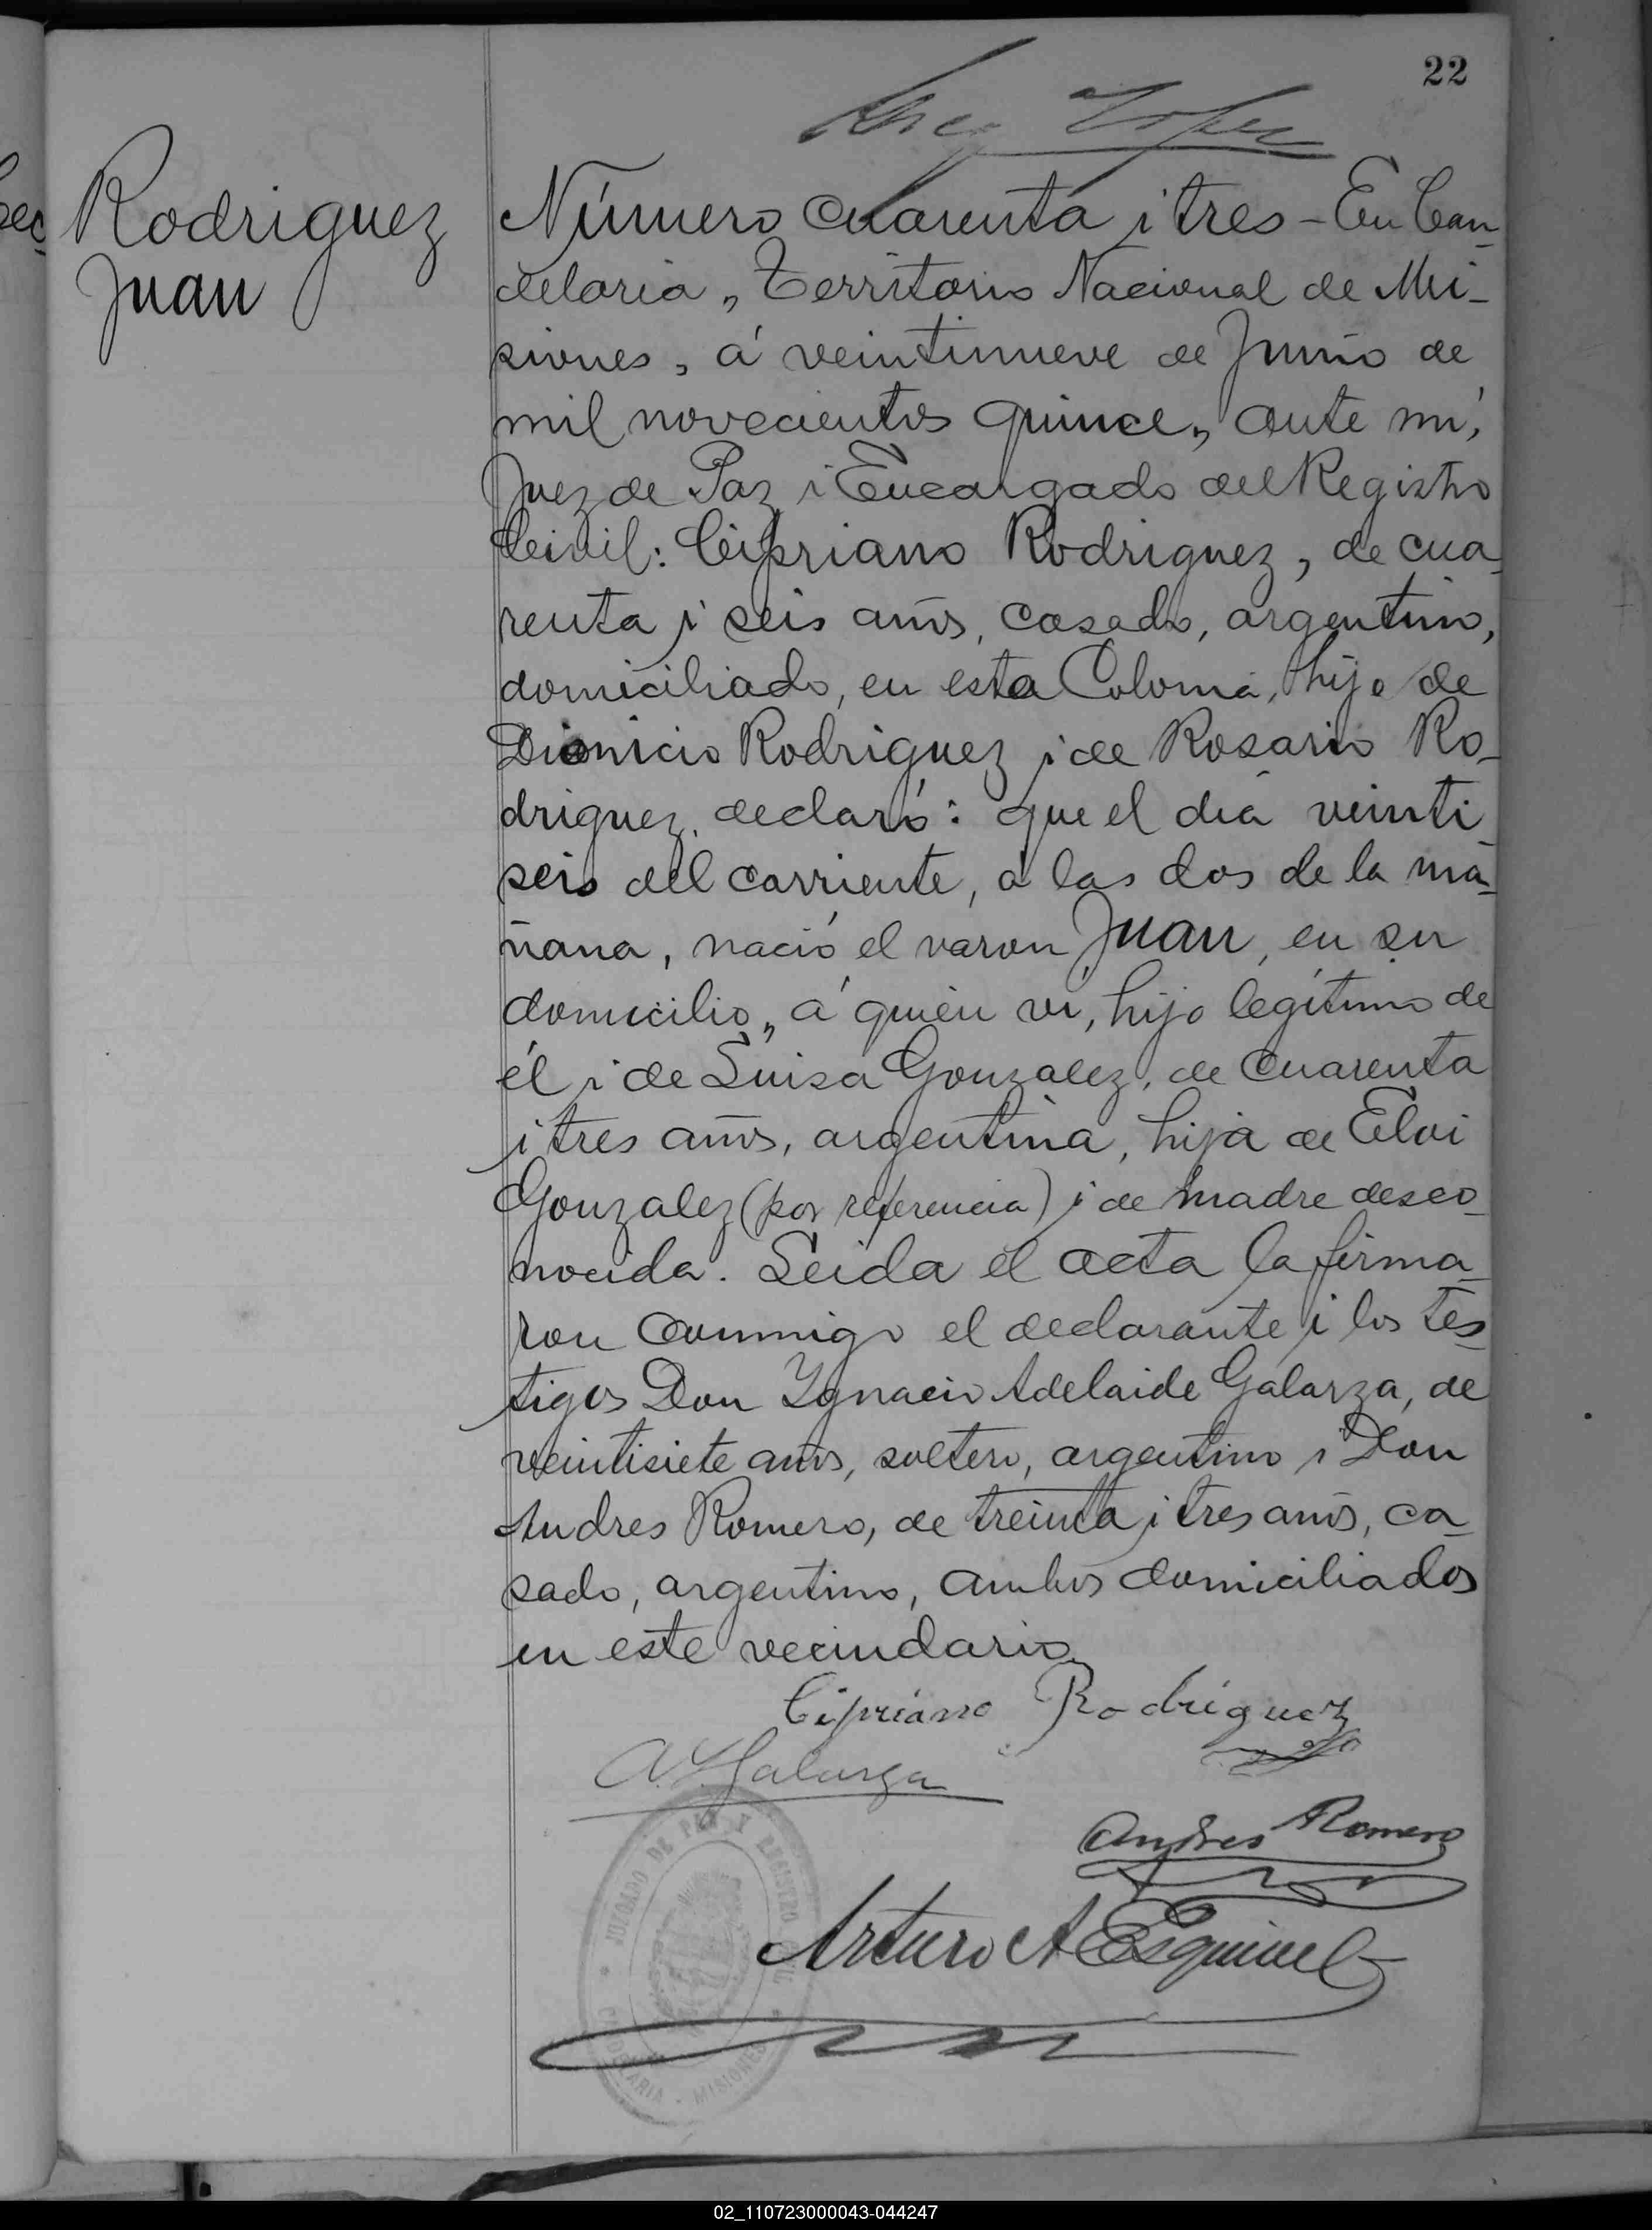 22
Rodriguez
Juan
Número cuarenta i tres - En Can-
delaria, Territorio Nacional de Mi-
siones, á veintinueve de Junio de
mil novecientos quince, ante mí,
Juez de Paz i Encargado del Registro
Civil: Cipriano Rodriguez, de cua-
renta i seis años, casado, argentino,
domiciliado, en esta Colonia, hijo de
Dionicio Rodriguez i de Rosario Ro-
driguez, declaró: que el dia veinti
seis del corriente, á las dos de la ma-
ñana, nació el varon Juan, en su
domicilio, á quien ví, hijo legítimo de
él i de Luisa Gonzalez, de cuarenta
i tres años, argentina, hija de Eloi
Gonzalez (por referencia) i de madre desco-
nocida. Leida el acta la firma-
ron conmigo el declarante i los tes-
tigos Don Ygnacio Adelaide Galarza, de
veintisiete años, soltero, argentino i Don
Andres Romero, de treinta i tres años, ca-
sado, argentino, ambos domiciliados
en este vecindario.
Cipriano Rodriguez
Galarza
Andres Romero
JUZGADO DE PAZ Y REGISTRO CIVIL
Arturo A Esquivel
CANDELARIA - MISIONES
02_110723000043-044247